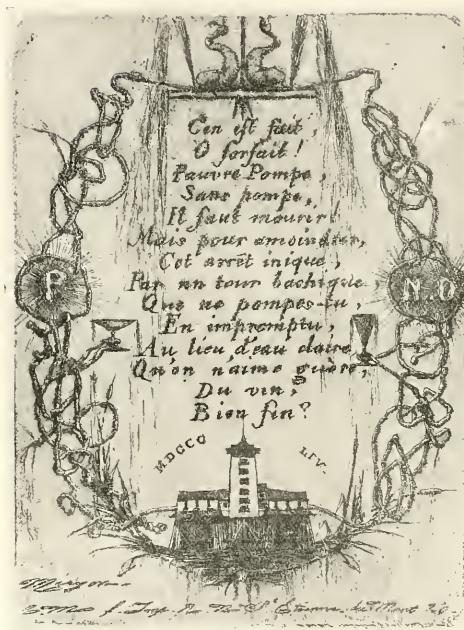 C'en est fait,
O forfait!
Pauvre Pompe,
Sans pompe,
Il faut mourir!
Mais pour amoindrir,
Cet arrêt inique,
Par un tour bachique,
Que ne pompes-tu,
En impromptu,
Au lieu d'eau claire
Qu'on n'aime guère,
Du vin,
Bien fin?
P.
N.D
MDCCC
LIV.
Meryon
St Etienne du Mont 26